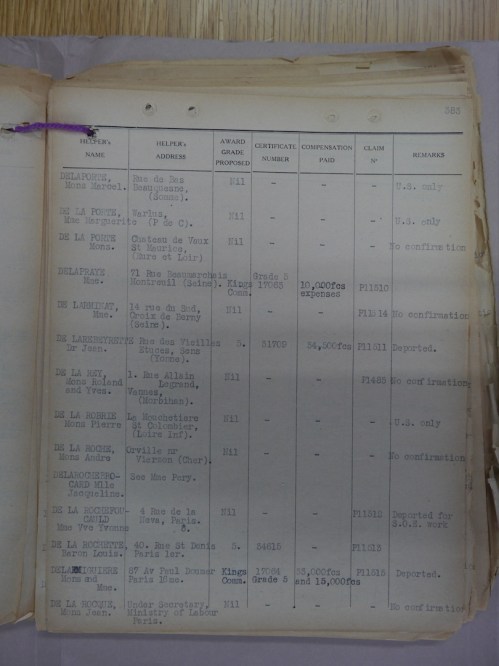 383
HELPER's NAME HELPER's ADDRESS AWARD GRADE PROPOSED CERTIFICATE NUMBER COMPENSATION PAID CLAIM Nº REMARKS
DELAPORTE, Rue de Bas Nil - - - U.S. only
Mons Marcel. Beauquesne,
(Somme).
DE LA PORTE, Warlus, Nil - - - U.S. only
Mme Marguerite (P de C).
DE LA PORTE Chateau de Vaux Nil - - - No confirmation
Monx. St Maurice,
(Eure et Loir)
DELAPRAYE 71 Rue Beaumarchais Grade 5
Mme. Montreuil (Seine). Kings 17063 10,000fcs P11510
Comm. expenses
14 rue du Sud, Nil - - P11514 No confirmation
Mme. Croix de Berny
(Seine).
Rue des Vieilles 5. 31709 34,500fcs P11511 Deported.
Dr Jean. Etuces, Sens
(Yonne).
DE LA REY, 1. Rue Allain Nil - - P1485 No confirmation
Mons Roland Legrand,
and Yves. Vannes,
(Morbihan).
DE LA ROBRIE La Mouchetiere Nil - - - U.S. only
Mons Pierre St Colombier,
(Loire Inf).
DE LA ROCHE, Orville nr Nil - - - No confirmation
Mons Andre Vierson (Cher).
DELAROCHEBRO- See Mme Pery.
CARD Mlle
Jacqueline.
DE LA ROCHEFOU- 4 Rue de la Nil - - P11512 Deported for
CAULD Neva, Paris. S.O.S. work
Mme Vve Yvonne 8.
DE LA ROCHETTE, 40. Rue St Denis 5. 54615 - P11513
Baron Louis. Paris 1er.
87 Av Paul Doumer Kings 17064 35,000fcs P11515 Deported.
Mons and Paris 16me. Comm. Grade 5 and 15,000fcs
Mme.
DE LA ROCQUE, Under Secretary, Nil - - - No confirmation
Mons Jean. Ministry of Labour
Paris.